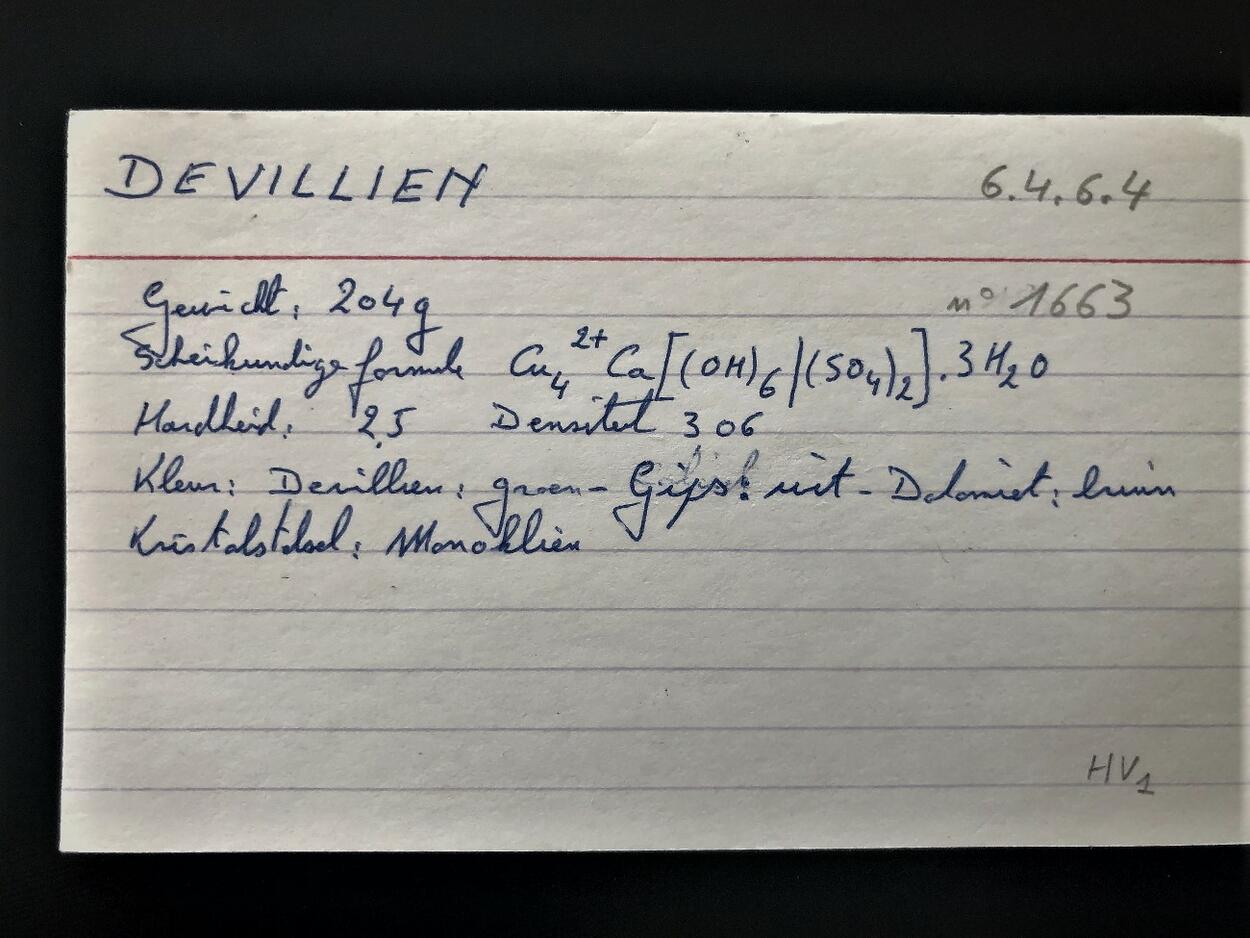 DEVILLIEN 6.4.6.4
Gewicht: 204g n° 1663
Scheikundige formule Cu₄²⁺Ca[(OH)₆|(SO₄)₂].3H₂O
Hardheid: 2,5 Densiteit 3 06
Kleur: Devillien: groen - Gips: wit - Dolomiet: bruin
Kristalstelsel: Monoklien
HV₁